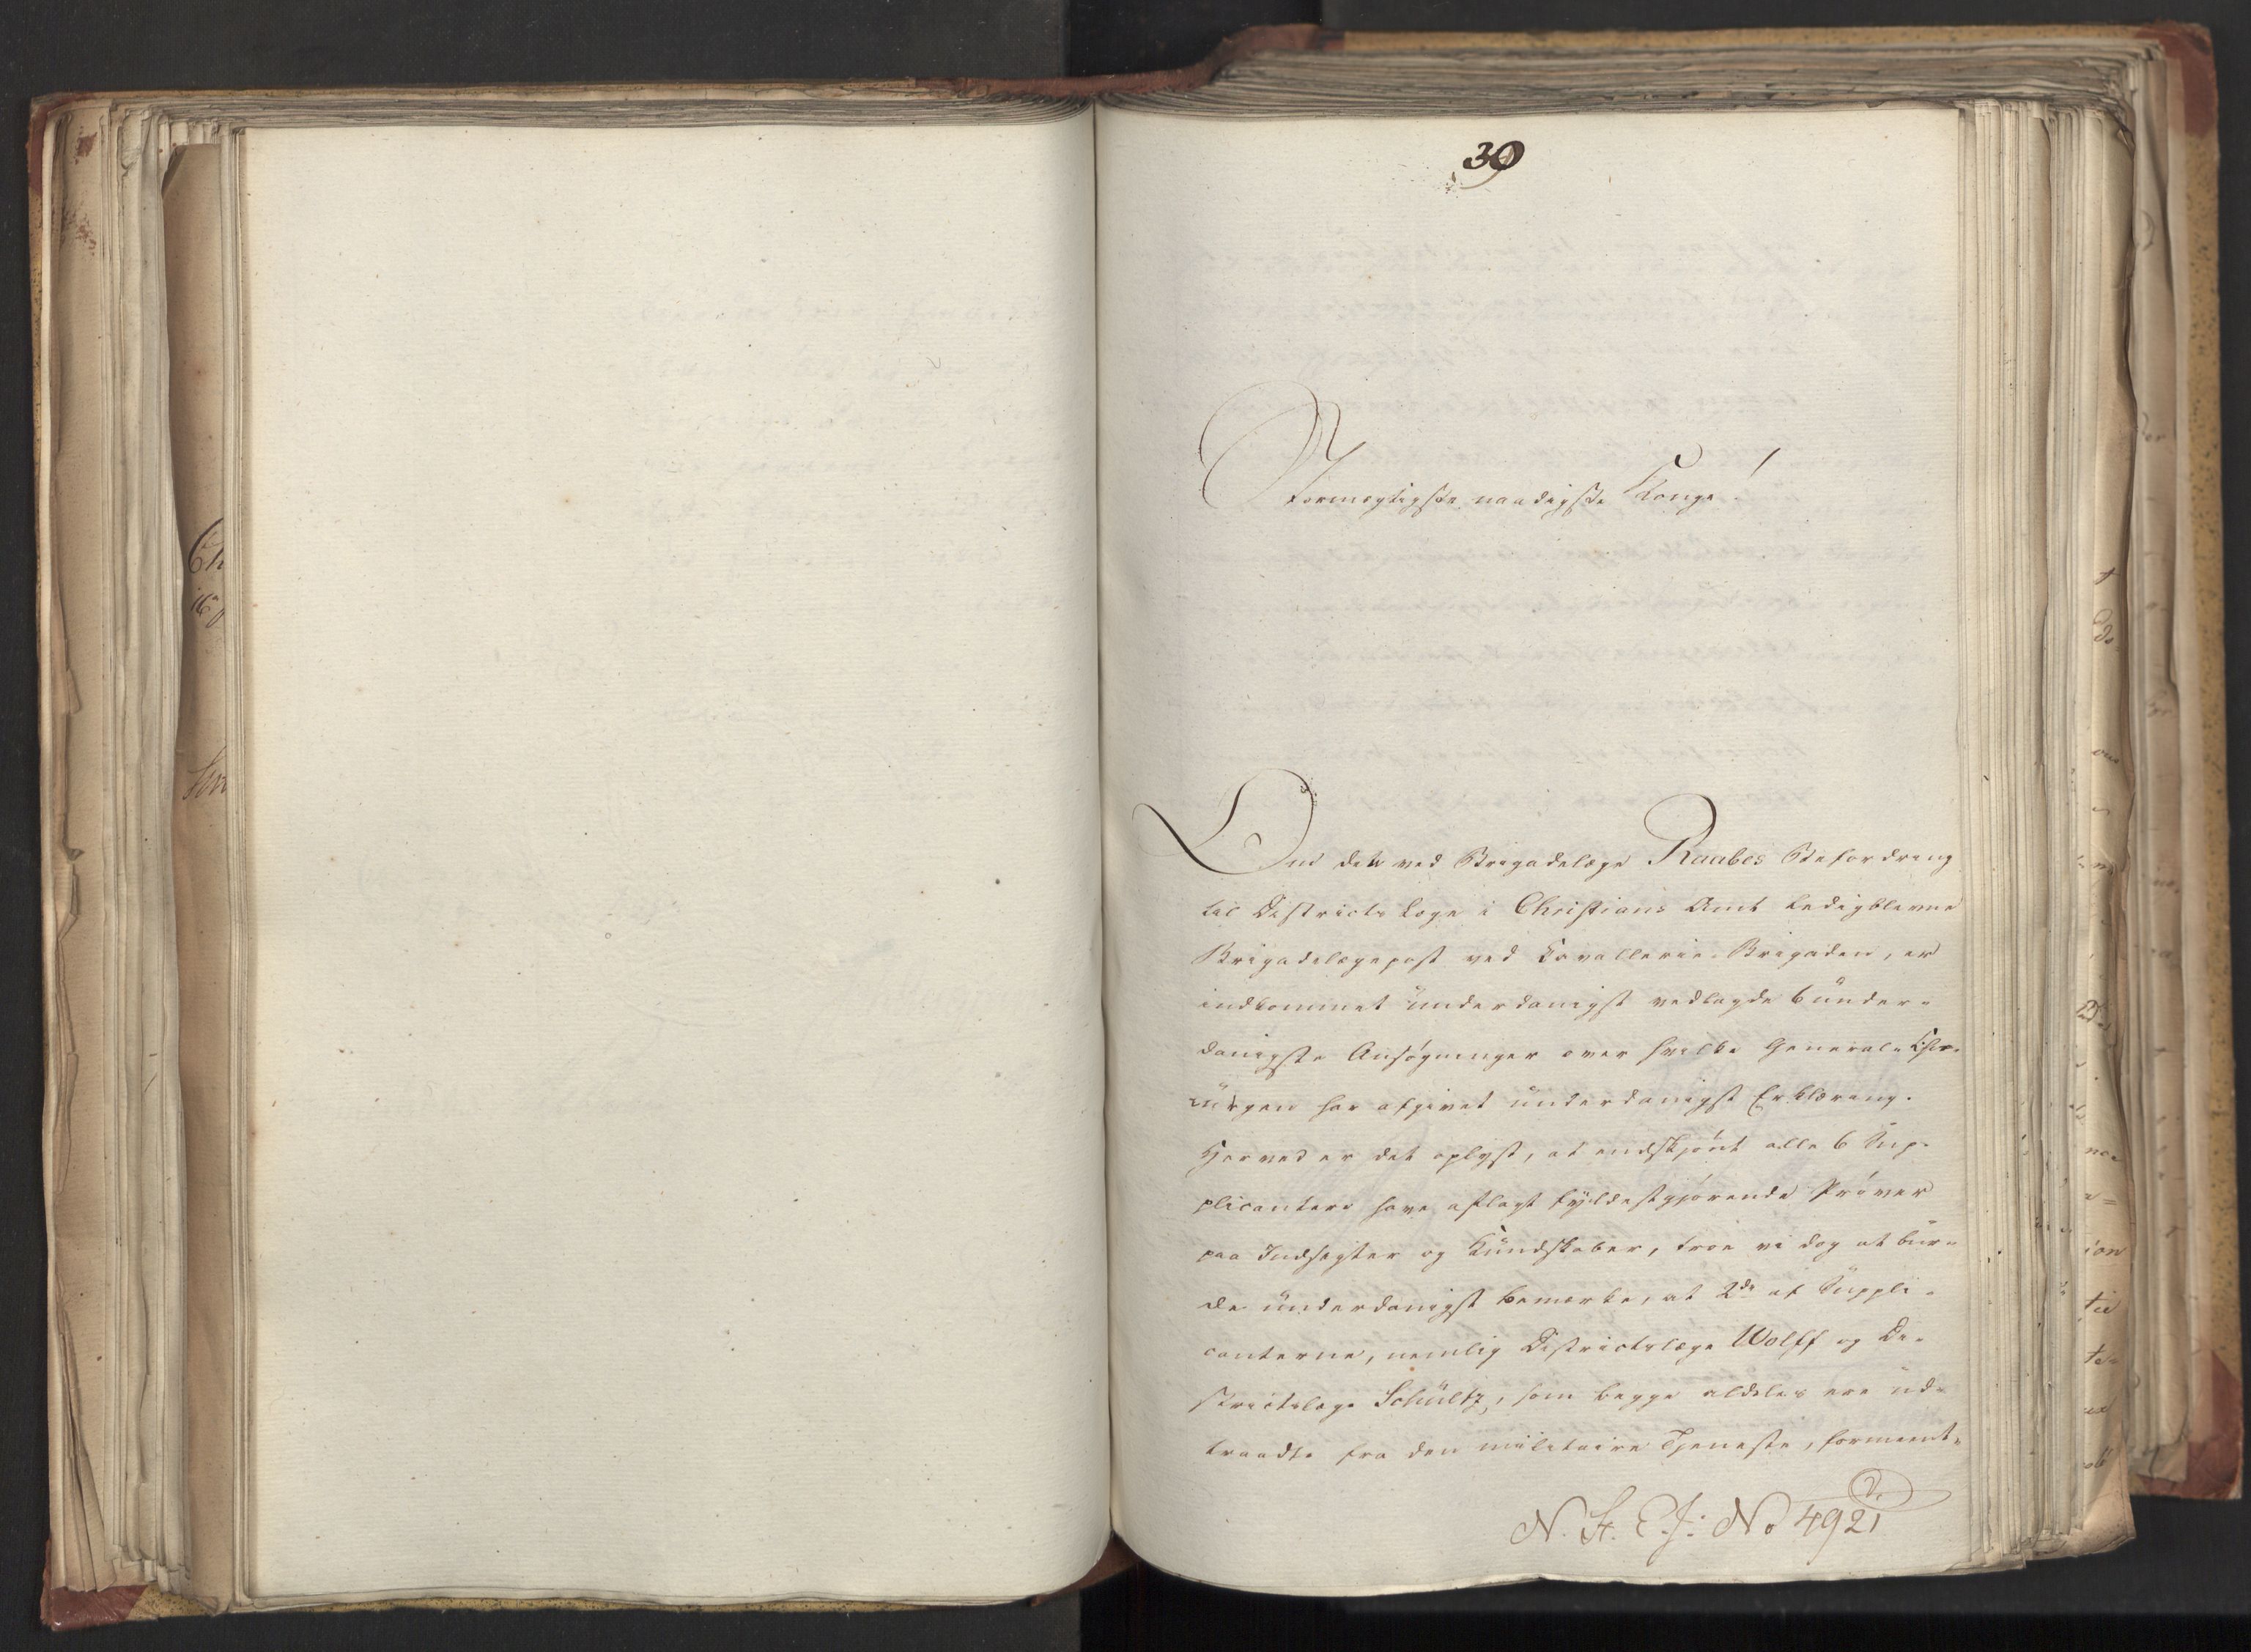 30
Stormægtigste, naadigste Konge!
Om det ved Brigadelæge Raabes Befordring
til Districts Læge i Christians Amt ledigblevne
Brigadelægepost ved Cavallerie-Brigaden, er
indkommet underdanigst vedlagde 6 under-
danigste Ansøgninger over hvilke General-Chi-
rurgen har afgivet underdanigst Erklæring.
Herved er det oplyst, at endskjønt alle 6 Sup-
plicanter have aflagt fyldestgjørende Prøver
paa Indsigter og Kundskaber, troe vi dog at bur-
de underdanigst bemærke, at 2de af Suppli-
canterne, nemlig Districtslæge Wolff og Di-
strictslæge Schültz, som begge aldeles ere ud-
traadte fra den militaire Tjeneste, forment-
N. St. C. J: No 4921